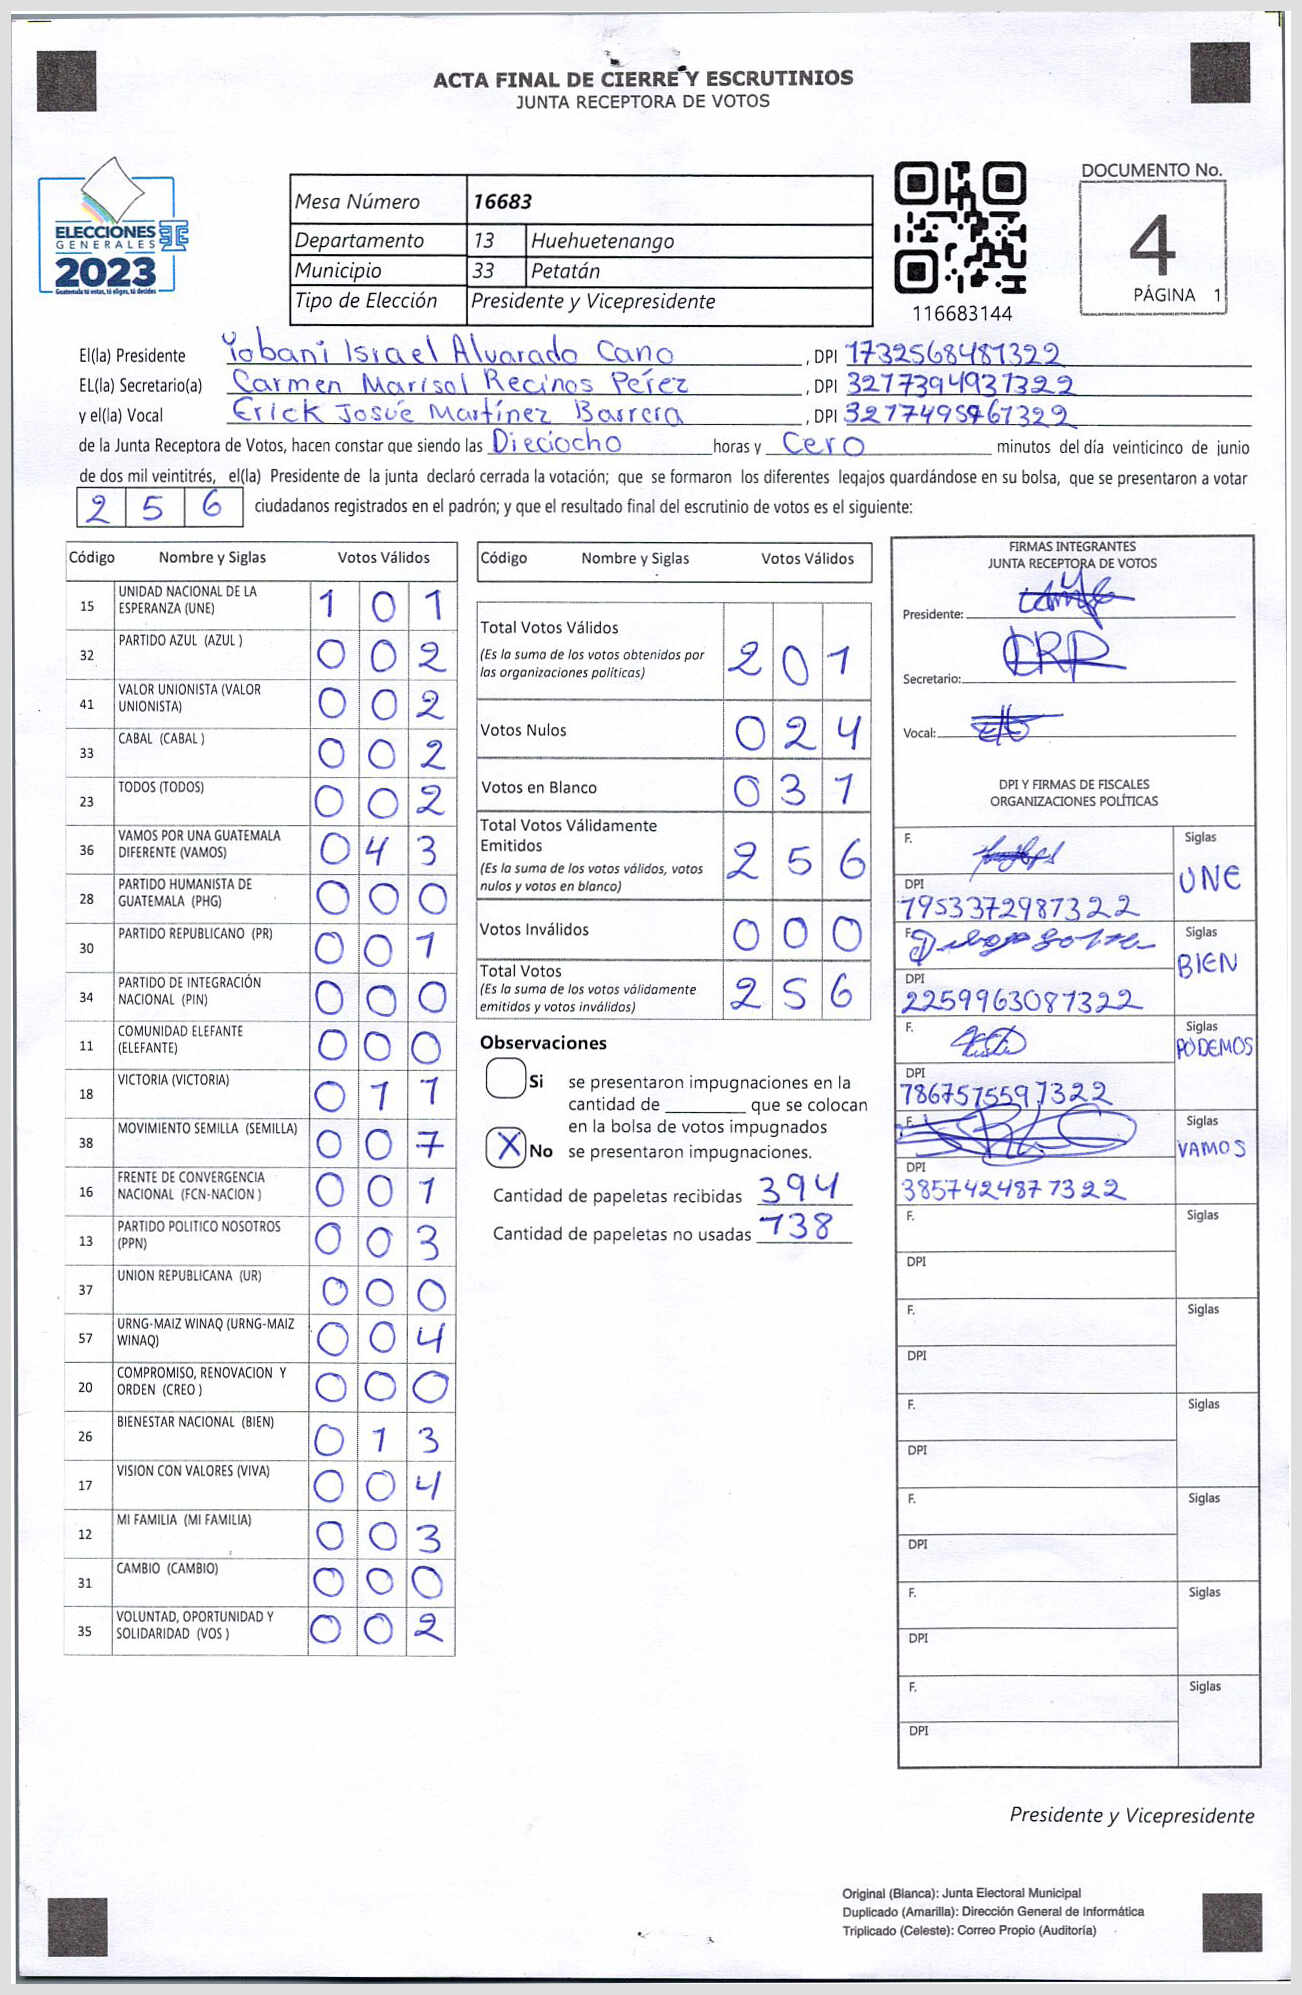 ACTA FINAL DE CIERRE Y ESCRUTINIOS
JUNTA RECEPTORA DE VOTOS
ELECCIONES
GENERALES
2023
Guatemala tú votas, tú eliges, tú decides
Mesa Número 16683
Departamento 13 Huehuetenango
Municipio 33 Petatán
Tipo de Elección Presidente y Vicepresidente
116683144
DOCUMENTO No.
4
PÁGINA 1
El(la) Presidente Yobani Israel Alvarado Cano, DPI 1732568481322
EL(la) Secretario(a) Carmen Marisol Recinos Pérez, DPI 3277394931322
y el(la) Vocal Erick Josué Martínez Barrera, DPI 3217495761322
de la Junta Receptora de Votos, hacen constar que siendo las Dieciocho horas y Cero minutos del día veinticinco de junio
de dos mil veintitrés, el(la) Presidente de la junta declaró cerrada la votación; que se formaron los diferentes legajos guardándose en su bolsa, que se presentaron a votar
2 5 6 ciudadanos registrados en el padrón; y que el resultado final del escrutinio de votos es el siguiente:
Código Nombre y Siglas Votos Válidos
15 UNIDAD NACIONAL DE LA ESPERANZA (UNE) 1 0 1
32 PARTIDO AZUL (AZUL ) 0 0 2
41 VALOR UNIONISTA (VALOR UNIONISTA) 0 0 2
33 CABAL (CABAL ) 0 0 2
23 TODOS (TODOS) 0 0 2
36 VAMOS POR UNA GUATEMALA DIFERENTE (VAMOS) 0 4 3
28 PARTIDO HUMANISTA DE GUATEMALA (PHG) 0 0 0
30 PARTIDO REPUBLICANO (PR) 0 0 1
34 PARTIDO DE INTEGRACIÓN NACIONAL (PIN) 0 0 0
11 COMUNIDAD ELEFANTE (ELEFANTE) 0 0 0
18 VICTORIA (VICTORIA) 0 1 1
38 MOVIMIENTO SEMILLA (SEMILLA) 0 0 7
16 FRENTE DE CONVERGENCIA NACIONAL (FCN-NACION ) 0 0 1
13 PARTIDO POLITICO NOSOTROS (PPN) 0 0 3
37 UNION REPUBLICANA (UR) 0 0 0
57 URNG-MAIZ WINAQ (URNG-MAIZ WINAQ) 0 0 4
20 COMPROMISO, RENOVACION Y ORDEN (CREO ) 0 0 0
26 BIENESTAR NACIONAL (BIEN) 0 1 3
17 VISION CON VALORES (VIVA) 0 0 4
12 MI FAMILIA (MI FAMILIA) 0 0 3
31 CAMBIO (CAMBIO) 0 0 0
35 VOLUNTAD, OPORTUNIDAD Y SOLIDARIDAD (VOS ) 0 0 2
Código Nombre y Siglas Votos Válidos
Total Votos Válidos 2 0 1
(Es la suma de los votos obtenidos por
las organizaciones políticas)
Votos Nulos 0 2 4
Votos en Blanco 0 3 1
Total Votos Válidamente
Emitidos 2 5 6
(Es la suma de los votos válidos, votos
nulos y votos en blanco)
Votos Inválidos 0 0 0
Total Votos 2 5 6
(Es la suma de los votos válidamente
emitidos y votos inválidos)
Observaciones
Si se presentaron impugnaciones en la
cantidad de ________ que se colocan
en la bolsa de votos impugnados
X No se presentaron impugnaciones.
Cantidad de papeletas recibidas 394
Cantidad de papeletas no usadas 138
FIRMAS INTEGRANTES
JUNTA RECEPTORA DE VOTOS
Presidente:
Secretario:
Vocal:
DPI Y FIRMAS DE FISCALES
ORGANIZACIONES POLÍTICAS
F. Siglas
UNE
DPI
1953372987322
F. Siglas
BIEN
DPI
2259963081322
F. Siglas
PODEMOS
DPI
1867575591322
F. Siglas
VAMOS
DPI
3857424871322
F. Siglas
DPI
F. Siglas
DPI
F. Siglas
DPI
F. Siglas
DPI
F. Siglas
DPI
F. Siglas
DPI
Presidente y Vicepresidente
Original (Blanca): Junta Electoral Municipal
Duplicado (Amarilla): Dirección General de Informática
Triplicado (Celeste): Correo Propio (Auditoría)